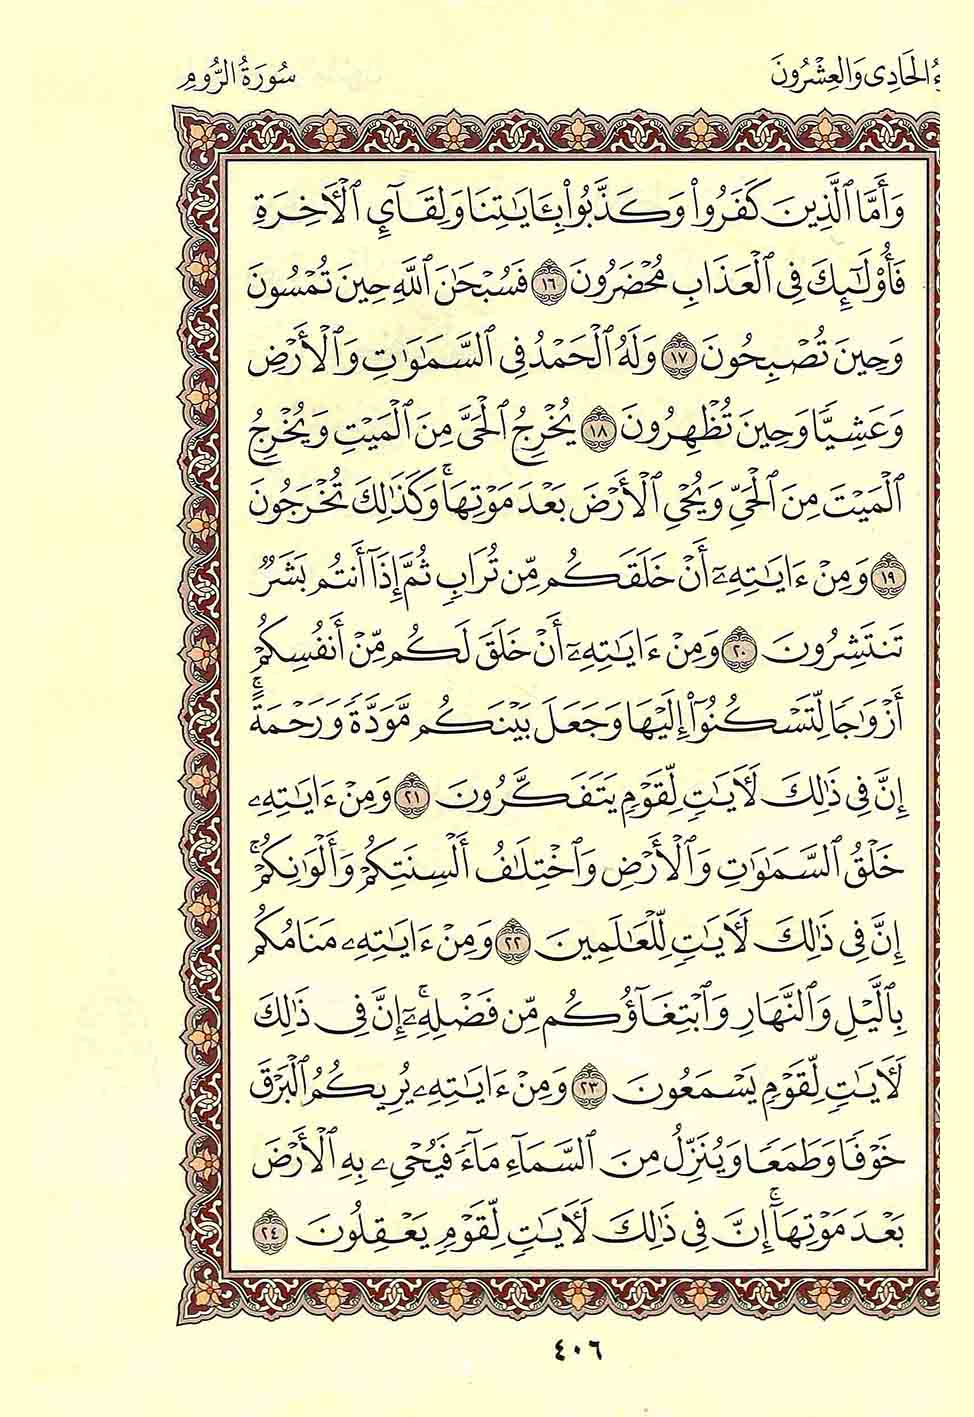 ءُ الْحَادِى وَالْعِشْرُونَ
سُورَةُ الرُّومِ
وَأَمَّا ٱلَّذِينَ كَفَرُوا۟ وَكَذَّبُوا۟ بِـَٔايَـٰتِنَا وَلِقَآئِ ٱلْـَٔاخِرَةِ
فَأُو۟لَـٰٓئِكَ فِى ٱلْعَذَابِ مُحْضَرُونَ ١٦ فَسُبْحَـٰنَ ٱللَّهِ حِينَ تُمْسُونَ
وَحِينَ تُصْبِحُونَ ١٧ وَلَهُ ٱلْحَمْدُ فِى ٱلسَّمَـٰوَٰتِ وَٱلْأَرْضِ
وَعَشِيًّا وَحِينَ تُظْهِرُونَ ١٨ يُخْرِجُ ٱلْحَىَّ مِنَ ٱلْمَيِّتِ وَيُخْرِجُ
ٱلْمَيِّتَ مِنَ ٱلْحَىِّ وَيُحْىِ ٱلْأَرْضَ بَعْدَ مَوْتِهَا ۚ وَكَذَٰلِكَ تُخْرَجُونَ
١٩ وَمِنْ ءَايَـٰتِهِۦٓ أَنْ خَلَقَكُم مِّن تُرَابٍ ثُمَّ إِذَآ أَنتُم بَشَرٌ
تَنتَشِرُونَ ٢٠ وَمِنْ ءَايَـٰتِهِۦٓ أَنْ خَلَقَ لَكُم مِّنْ أَنفُسِكُمْ
أَزْوَٰجًا لِّتَسْكُنُوٓا۟ إِلَيْهَا وَجَعَلَ بَيْنَكُم مَّوَدَّةً وَرَحْمَةً ۚ
إِنَّ فِى ذَٰلِكَ لَـَٔايَـٰتٍ لِّقَوْمٍ يَتَفَكَّرُونَ ٢١ وَمِنْ ءَايَـٰتِهِۦ
خَلْقُ ٱلسَّمَـٰوَٰتِ وَٱلْأَرْضِ وَٱخْتِلَـٰفُ أَلْسِنَتِكُمْ وَأَلْوَٰنِكُمْ ۚ
إِنَّ فِى ذَٰلِكَ لَـَٔايَـٰتٍ لِّلْعَـٰلِمِينَ ٢٢ وَمِنْ ءَايَـٰتِهِۦ مَنَامُكُم
بِٱلَّيْلِ وَٱلنَّهَارِ وَٱبْتِغَآؤُكُم مِّن فَضْلِهِۦٓ ۚ إِنَّ فِى ذَٰلِكَ
لَـَٔايَـٰتٍ لِّقَوْمٍ يَسْمَعُونَ ٢٣ وَمِنْ ءَايَـٰتِهِۦ يُرِيكُمُ ٱلْبَرْقَ
خَوْفًا وَطَمَعًا وَيُنَزِّلُ مِنَ ٱلسَّمَآءِ مَآءً فَيُحْىِۦ بِهِ ٱلْأَرْضَ
بَعْدَ مَوْتِهَآ ۚ إِنَّ فِى ذَٰلِكَ لَـَٔايَـٰتٍ لِّقَوْمٍ يَعْقِلُونَ ٢٤
٤٠٦